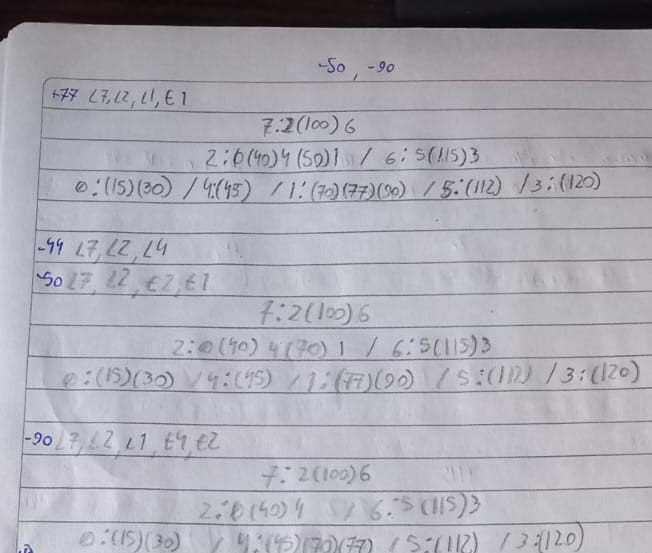 -50, -90
+77 L7, L2, L1, E1
7:2(100)6
2:0(40)4(50)1 / 6:5(115)3
0:(15)(30) / 4:(45) / 1:(70)(77)(90) / 5:(112) / 3:(120)
-99 L7, L2, L4
-50 L7, L2, E2, E1
7:2(100)6
2:0(40)4(70)1 / 6:5(115)3
0:(15)(30) / 4:(45) / 1:(77)(90) / 5:(112) / 3:(120)
-90 L7, L2, L1, E4, E2
7:2(100)6
2:0(40)4 / 6:5(115)3
0:(15)(30) / 4:(45)(70)(77) / 5:(112) / 3:(120)